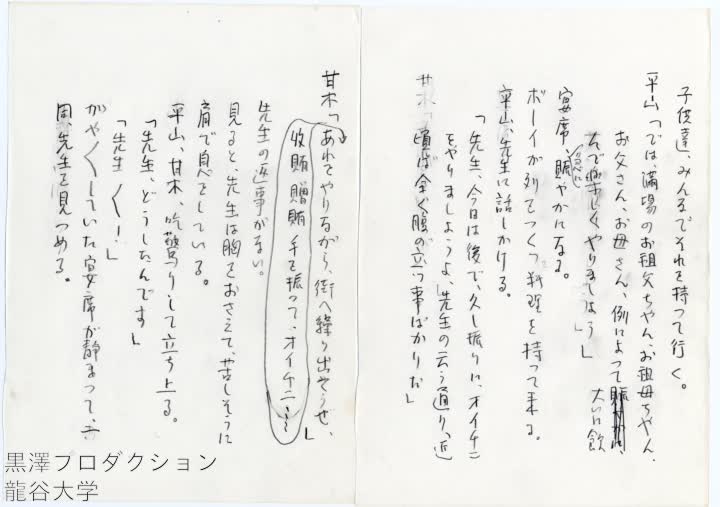 子供達、みんなでそれを持って行く。
平山「では、満場のお祖父ちゃん、お祖母ちゃん、
お父さん、お母さん、例によって 大いに飲
んで やりましょう！」
宴席、賑やかになる。
ボーイが列をつくって料理を持って来る。
平山、先生に話しかける。
「先生、今日は後で、久し振りに、オイチニ
をやりましょうよ、先生の云う通り、近
頃は全く腹の立つ事ばかりだ」
甘木「あれをやりながら、街へ繰り出そうぜ、
収賄贈賄 手を振って、オイチニ……」
先生の返事がない。
見ると、先生は胸をおさえて、苦しそうに
肩で息をしている。
平山、甘木、吃驚りして立ち上る。
「先生、どうしたんです」
「先生〱！」
がや〱していた宴席が静まって、六
周、先生を見つめる。
黒澤プロダクション
龍谷大学